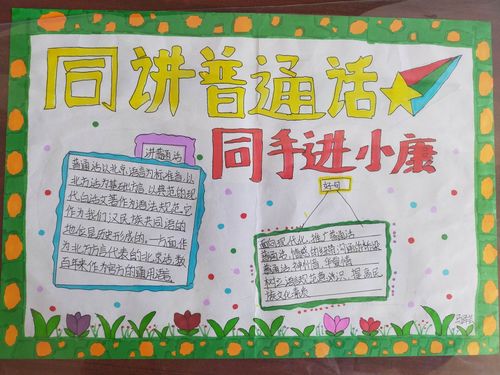 同讲普通话
同手进小康
讲普通话
普通话以北京语音为标准音,以
北方话为基础方言,以典范的现
代白话文著作为语法规范,它
作为我们汉民族共同语的
地位是历史形成的,一方面作
为北方方言代表的北京话,数
百年来作为官方的通用语。
好句
面向现代化,推广普通话
普通话,情感的纽带,沟通的桥梁
普通话,神州音,华夏情
树立规范意识,提高民
族文化素质